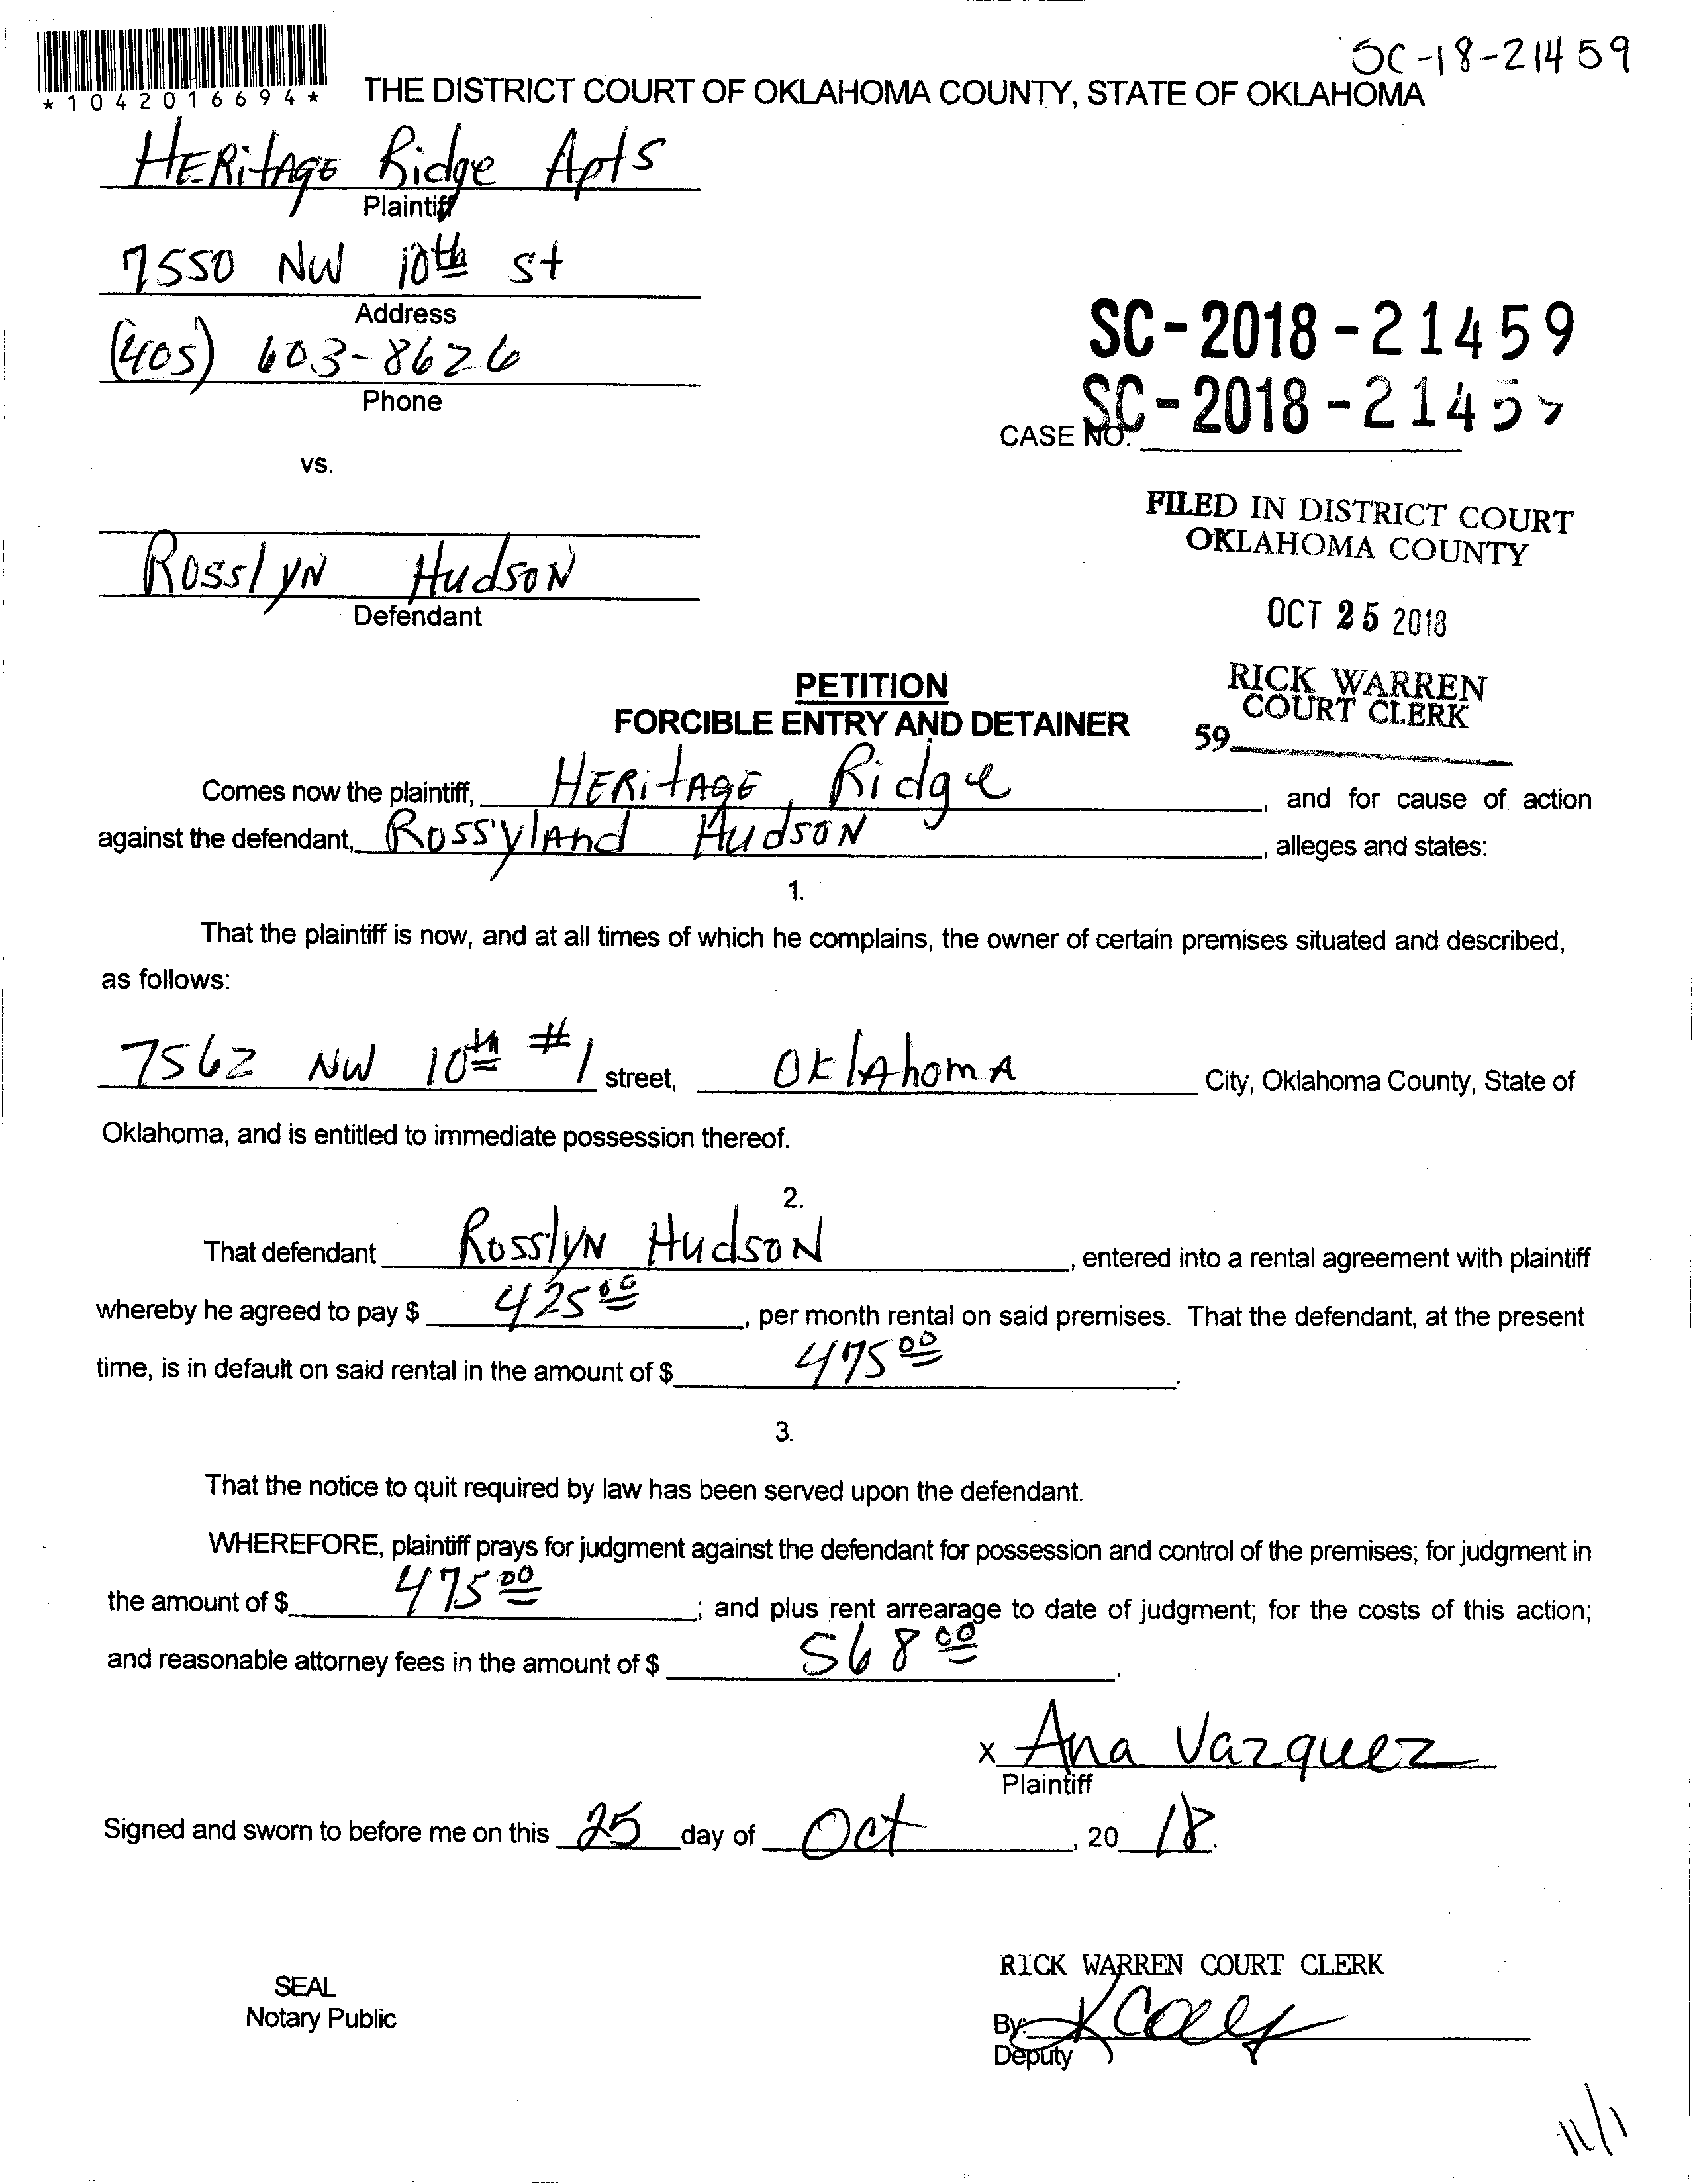 SC-18-21459
*1042016694*
THE DISTRICT COURT OF OKLAHOMA COUNTY, STATE OF OKLAHOMA
HERitAGE Ridge Apts
Plaintiff
7550 NW 10th St
Address
(405) 603-8626
Phone
SC-2018-21459
SC-2018-2145
CASE NO.
vs.
FILED IN DISTRICT COURT
OKLAHOMA COUNTY
Rosslyn Hudson
Defendant
OCT 25 2018
RICK WARREN
COURT CLERK
59
PETITION
FORCIBLE ENTRY AND DETAINER
Comes now the plaintiff, HERitAGE Ridge, and for cause of action
against the defendant, RossylAnd Hudson, alleges and states:
1.
That the plaintiff is now, and at all times of which he complains, the owner of certain premises situated and described,
as follows:
7562 NW 10th #1 street, OklAhomA City, Oklahoma County, State of
Oklahoma, and is entitled to immediate possession thereof.
2.
That defendant Rosslyn Hudson, entered into a rental agreement with plaintiff
whereby he agreed to pay $ 425 00, per month rental on said premises. That the defendant, at the present
time, is in default on said rental in the amount of $ 475 00.
3.
That the notice to quit required by law has been served upon the defendant.
WHEREFORE, plaintiff prays for judgment against the defendant for possession and control of the premises; for judgment in
the amount of $ 475 00; and plus rent arrearage to date of judgment; for the costs of this action;
and reasonable attorney fees in the amount of $ 568 00.
x Ana Vazquez
Plaintiff
Signed and sworn to before me on this 25 day of Oct, 20 18.
RICK WARREN COURT CLERK
SEAL
Notary Public
By:
Deputy
11/1